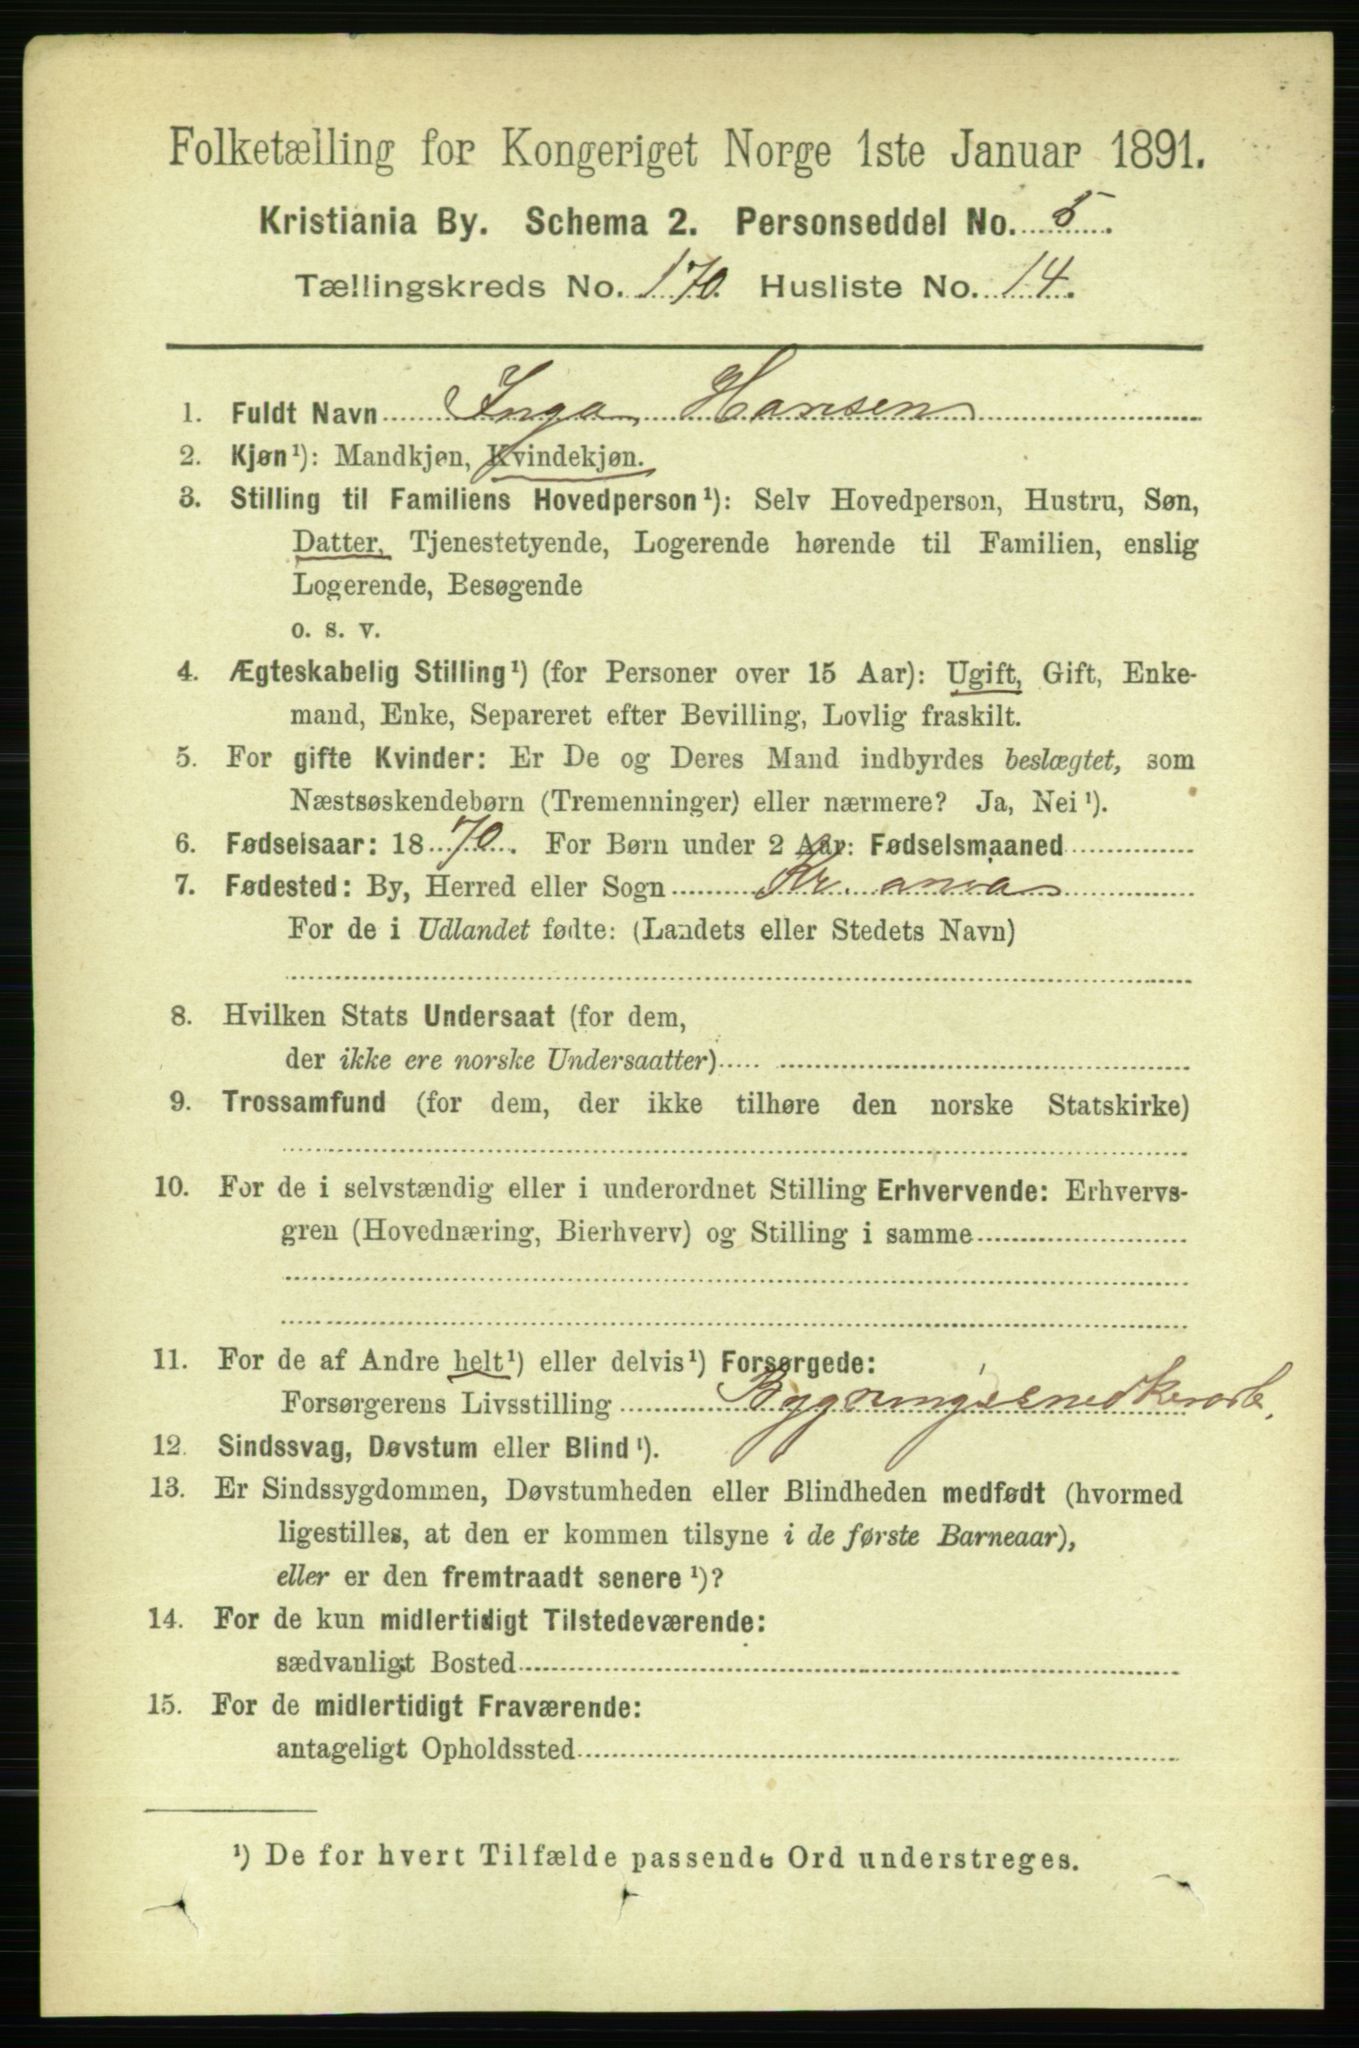 Folketælling for Kongeriget Norge 1ste Januar 1891.
Kristiania By. Schema 2. Personseddel No. 5.
Tællingskreds No. 170. Husliste No. 14.
1. Fuldt Navn Inga Hansen
2. Kjøn¹): Mandkjøn, Kvindekjøn.
3. Stilling til Familiens Hovedperson¹): Selv Hovedperson, Hustru, Søn,
Datter, Tjenestetyende, Logerende hørende til Familien, enslig
Logerende, Besøgende
o. s. v.
4. Ægteskabelig Stilling¹) (for Personer over 15 Aar): Ugift, Gift, Enke-
mand, Enke, Separeret efter Bevilling, Lovlig fraskilt.
5. For gifte Kvinder: Er De og Deres Mand indbyrdes beslægtet, som
Næstsøskendebørn (Tremenninger) eller nærmere? Ja, Nei¹).
6. Fødselsaar: 1870. For Børn under 2 Aar: Fødselsmaaned
7. Fødested: By, Herred eller Sogn Kr.ania
For de i Udlandet fødte: (Landets eller Stedets Navn)
8. Hvilken Stats Undersaat (for dem,
der ikke ere norske Undersaatter)
9. Trossamfund (for dem, der ikke tilhøre den norske Statskirke)
10. For de i selvstændig eller i underordnet Stilling Erhvervende: Erhvervs-
gren (Hovednæring, Bierhverv) og Stilling i samme
11. For de af Andre helt¹) eller delvis¹) Forsørgede:
Forsørgerens Livsstilling Bygningssnedkerarb.
12. Sindssvag, Døvstum eller Blind¹).
13. Er Sindssygdommen, Døvstumheden eller Blindheden medfødt (hvormed
ligestilles, at den er kommen tilsyne i de første Barneaar),
eller er den fremtraadt senere¹)?
14. For de kun midlertidigt Tilstedeværende:
sædvanligt Bosted
15. For de midlertidigt Fraværende:
antageligt Opholdssted
¹) De for hvert Tilfælde passende Ord understreges.